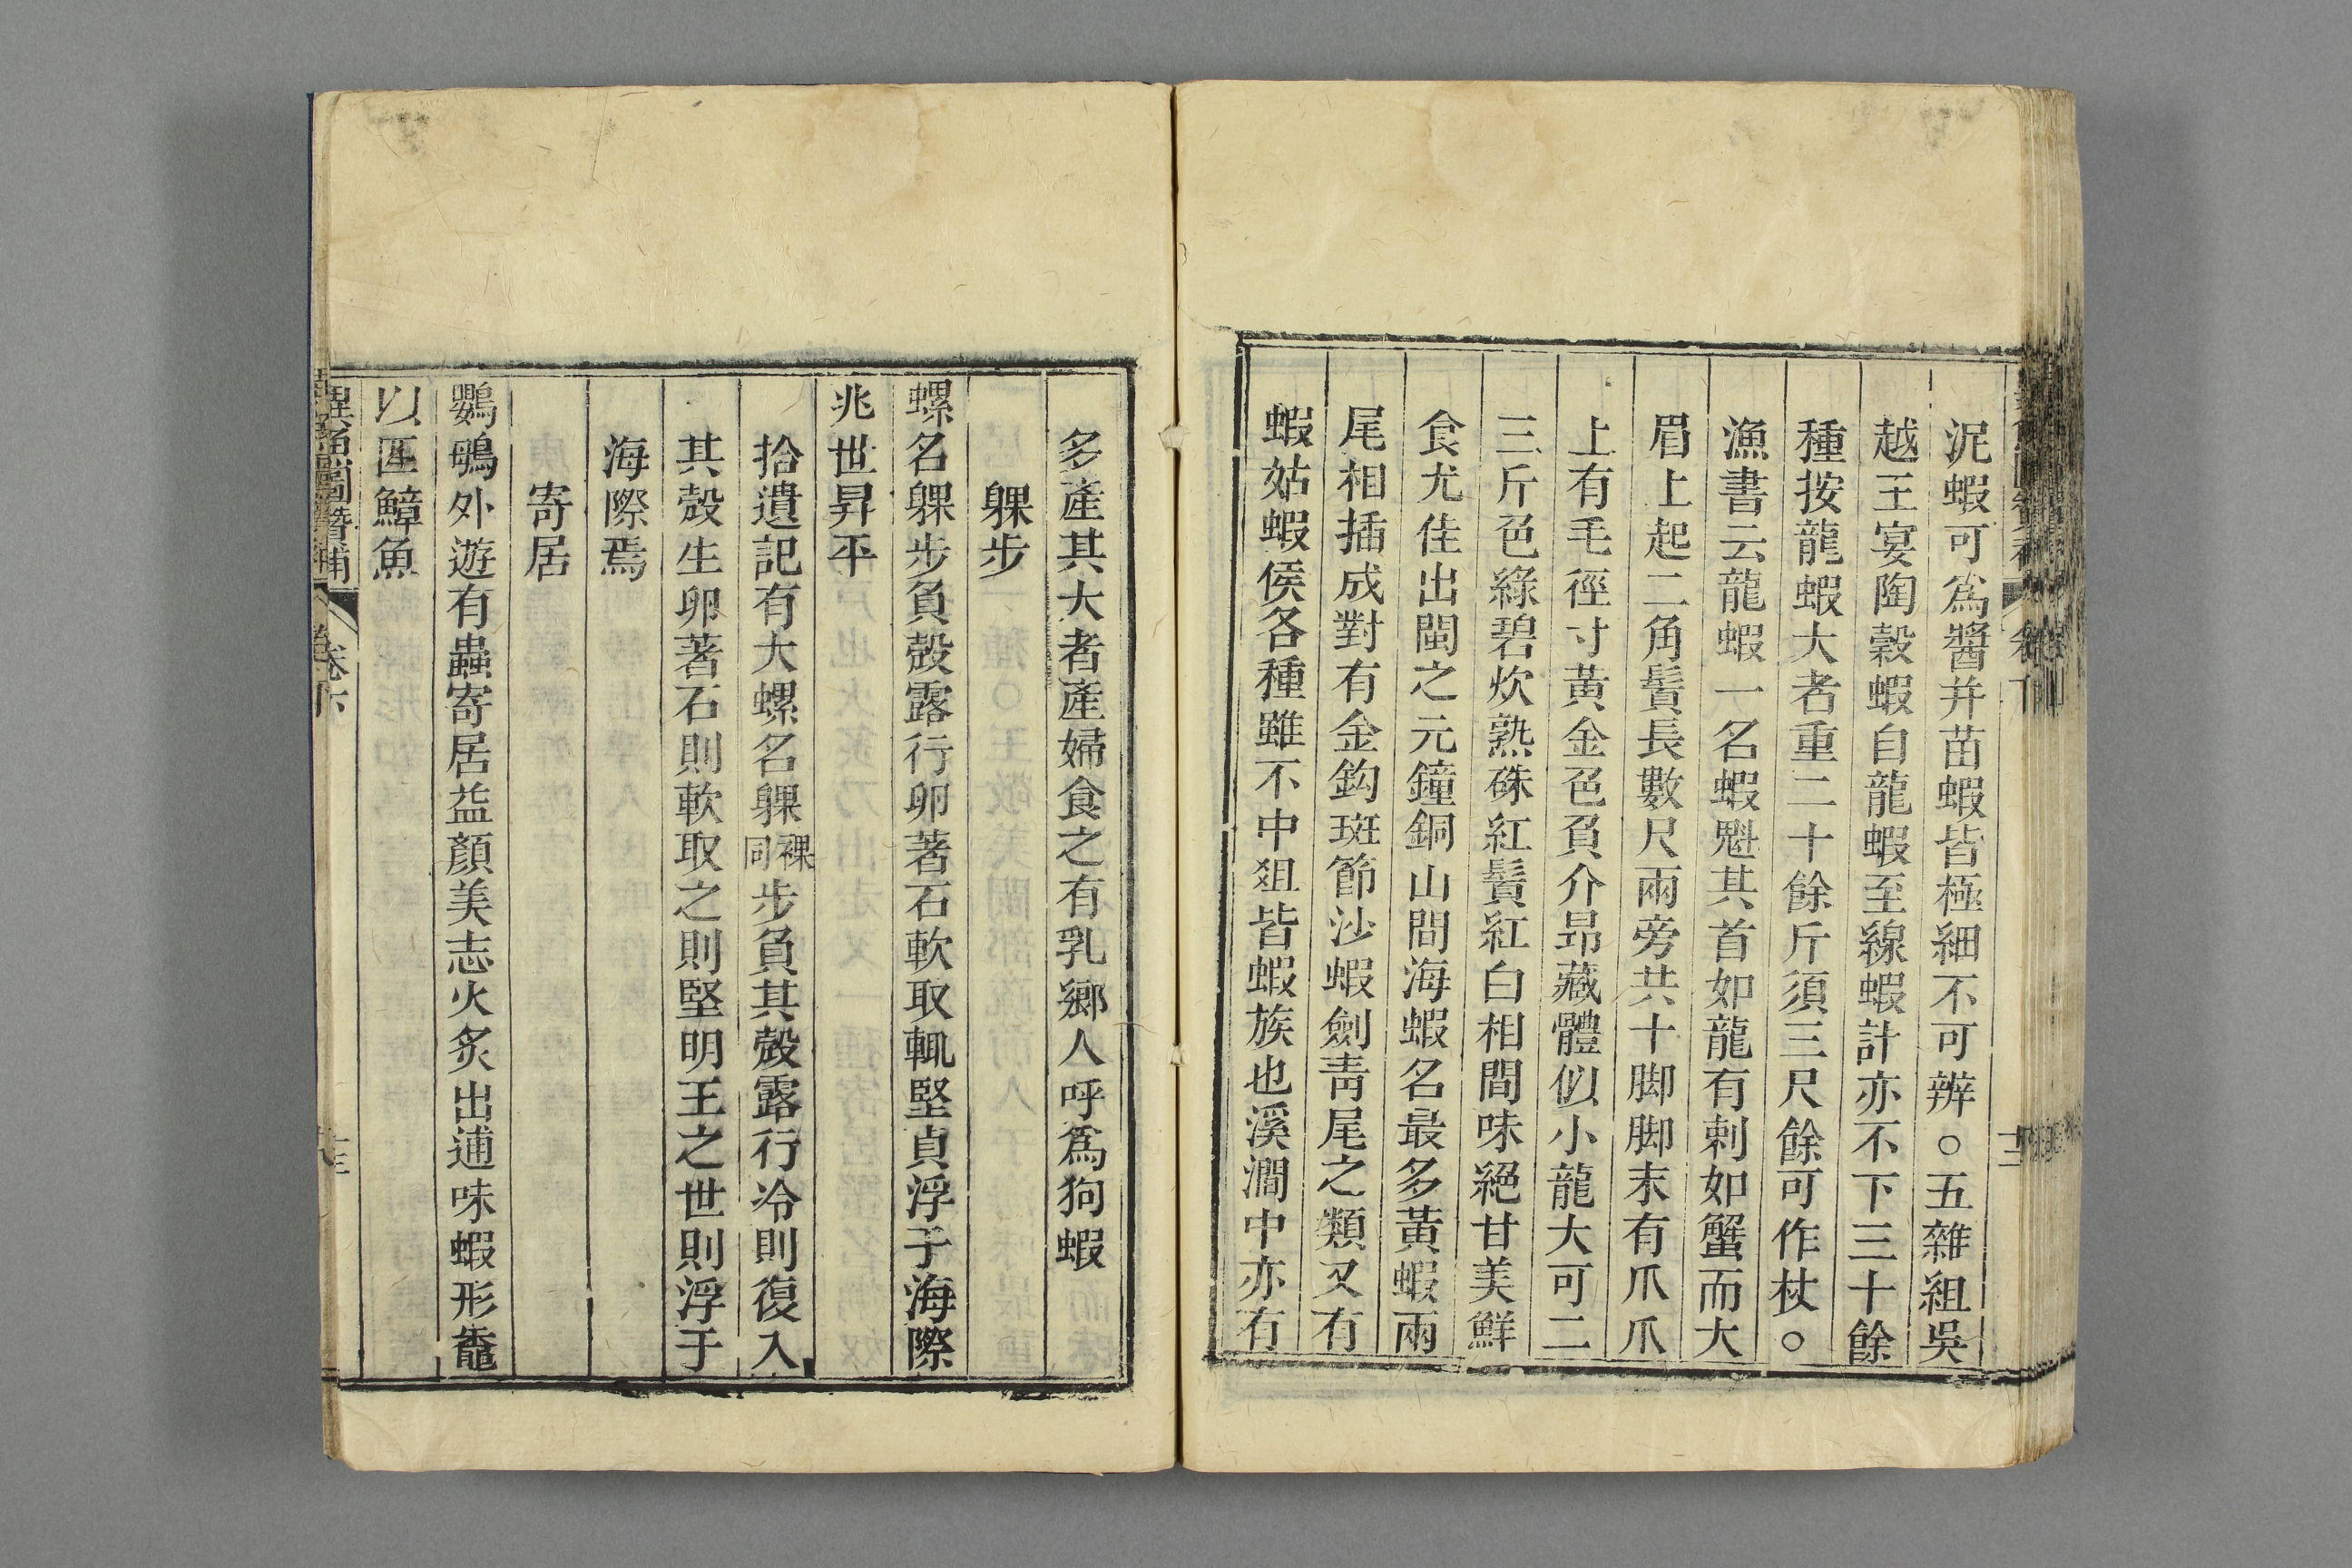 泥蝦可為醬并苗蝦皆極細不可辨○五雜組吳
越王宴陶穀蝦自龍蝦至線蝦計亦不下三十餘
種按龍蝦大者重二十餘斤須三尺餘可作杖○
漁書云龍蝦一名蝦魁其首如龍有刺如蟹而大
眉上起二角鬚長數尺兩旁共十脚脚末有爪爪
上有毛徑寸黃金色負介昂藏體似小龍大可二
三斤色綠碧炊熟硃紅鬚紅白相間味絕甘美鮮
食尤佳出閩之元鐘銅山間海蝦名最多黃蝦兩
尾相插成對有金鈎斑節沙蝦劍青尾之類又有
蝦姑蝦侯各種雖不中俎皆蝦族也溪澗中亦有
多產其大者產婦食之有乳鄉人呼爲狗蝦
躶步
螺名躶步負殼露行卵著石軟取輒堅貞浮于海際
兆世昇平
拾遺記有大螺名躶裸同步負其殼露行冷則復入
其殼生卵著石則軟取之則堅明王之世則浮于
海際焉
寄居
鸚鵡外遊有蟲寄居益顏美志火炙出逋味蝦形鼊
以匹鱆魚
異魚圖贊補
卷下
十三